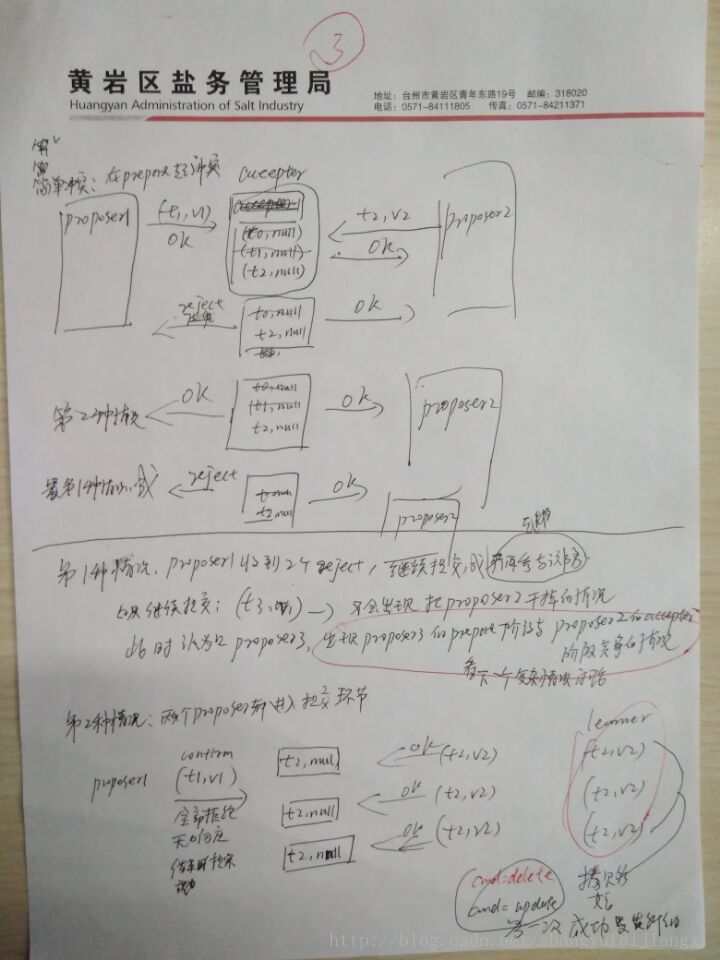 3
黄岩区盐务管理局
Huangyan Administration of Salt Industry
地址：台州市黄岩区青年东路19号 邮编：318020
电话：0571-84111805 传真：0571-84211371
简单冲突：在prepare起冲突
accepter
proposer1
(t1,v1)
ok
(t0,null)
(t1,null)
(t2,null)
t2,v2
ok
proposer2
reject
t0,null
t2,null
ok
第2种情况
ok
t0,null
(t1,null
t2,null
ok
proposer2
reject
t0,null
t2,null
ok
proposer2
第1种情况，proposer1收到2个reject，继续提交，或
继续提交：(t3, → 会出现把proposer2干掉的情况
此时认为是proposer3，出现proposer3的prepare阶段与proposer2的accepter
阶段竞争的情况
看下一个复杂情况
第2种情况：两个proposer都进入提交环节
learner
proposer1
confirm
(t1,v1)
全部拒绝
无响应
t2,null
t2,null
t2,null
ok (t2,v2)
ok (t2,v2)
ok (t2,v2)
(t2,v2)
(t2,v2)
(t2,v2)
cmd=delete
cmd=update
http://blog.csdn.net/zhangyufeijiangx